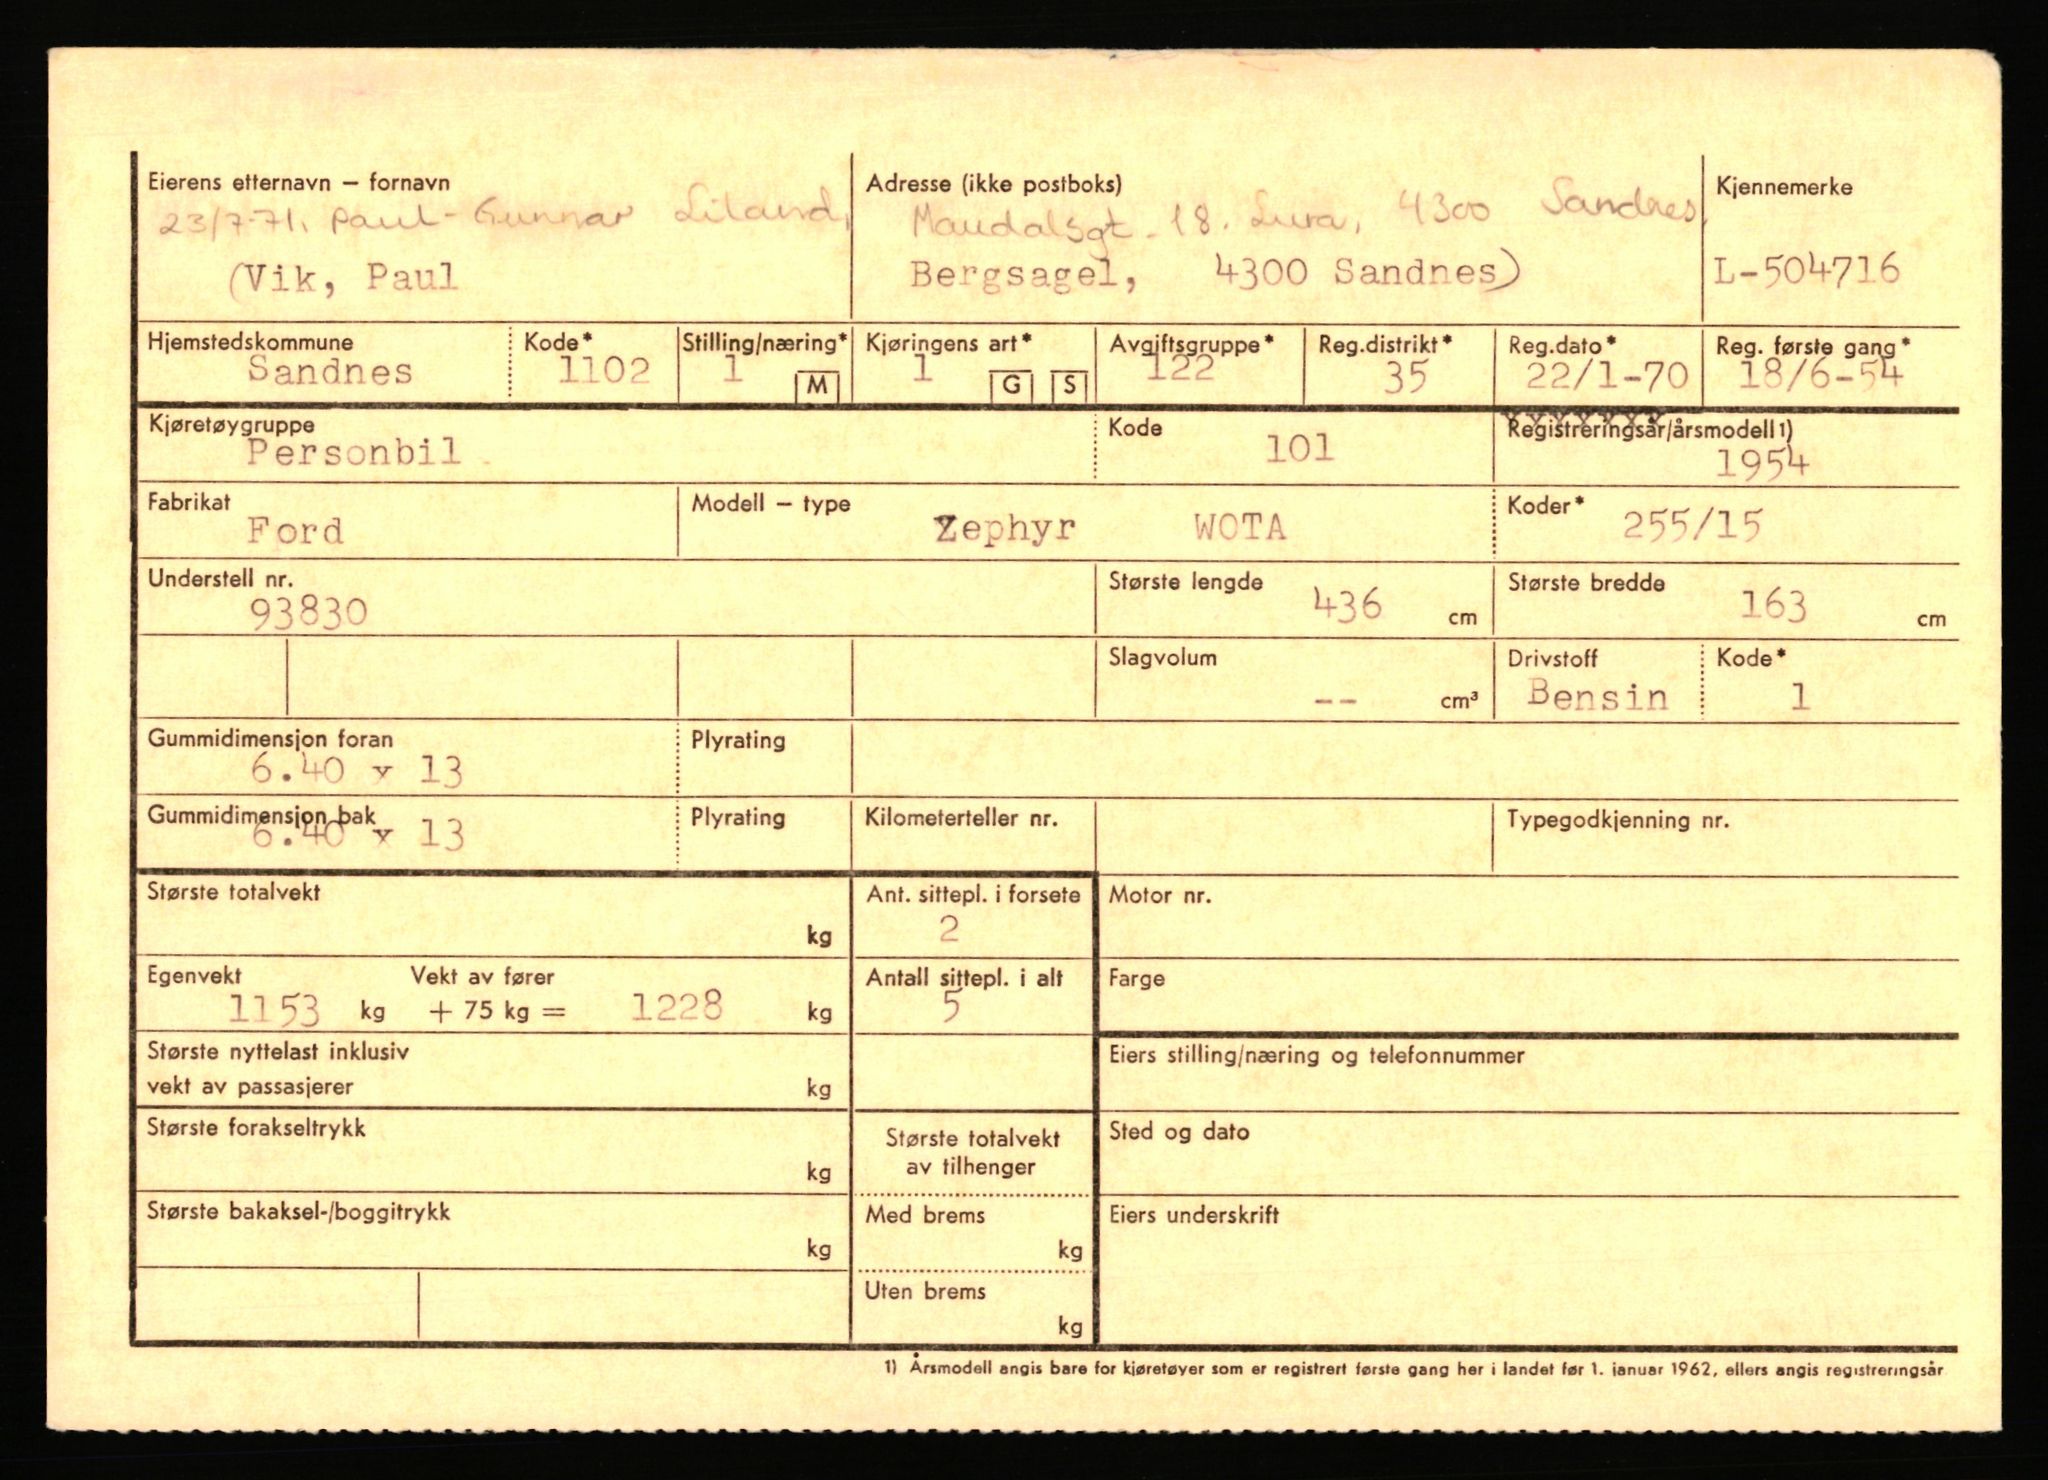 Eierens etternavn – fornavn
23/7-71. Paul-Gunnar Liland,
(Vik, Paul
Adresse (ikke postboks)
Maudalsgt. 18. Lura, 4300 Sandnes,
Bergsagel, 4300 Sandnes)
Kjennemerke
L-504716
Hjemstedskommune
Sandnes
Kode*
1102
Stilling/næring*
1 M
Kjøringens art*
1 G S
Avgiftsgruppe*
122
Reg.distrikt*
35
Reg.dato*
22/1-70
Reg. første gang*
18/6-54
Kjøretøygruppe
Personbil
Kode
101
xxxxxxx
Registreringsår/årsmodell 1)
1954
Fabrikat
Ford
Modell – type
Zephyr WOTA
Koder*
255/15
Understell nr.
93830
Største lengde
436 cm
Største bredde
163 cm
Slagvolum
-- cm³
Drivstoff
Bensin
Kode*
1
Gummidimensjon foran
6.40 x 13
Plyrating
Gummidimensjon bak
6.40 x 13
Plyrating
Kilometerteller nr.
Typegodkjenning nr.
Største totalvekt
kg
Ant. sittepl. i forsete
2
Motor nr.
Egenvekt Vekt av fører
1153 kg + 75 kg = 1228 kg
Antall sittepl. i alt
5
Farge
Største nyttelast inklusiv
vekt av passasjerer kg
Eiers stilling/næring og telefonnummer
Største forakseltrykk
kg
Største totalvekt
av tilhenger
Sted og dato
Største bakaksel-/boggitrykk
kg
Med brems
kg
Eiers underskrift
Uten brems
kg
1) Årsmodell angis bare for kjøretøyer som er registrert første gang her i landet før 1. januar 1962, ellers angis registreringsår